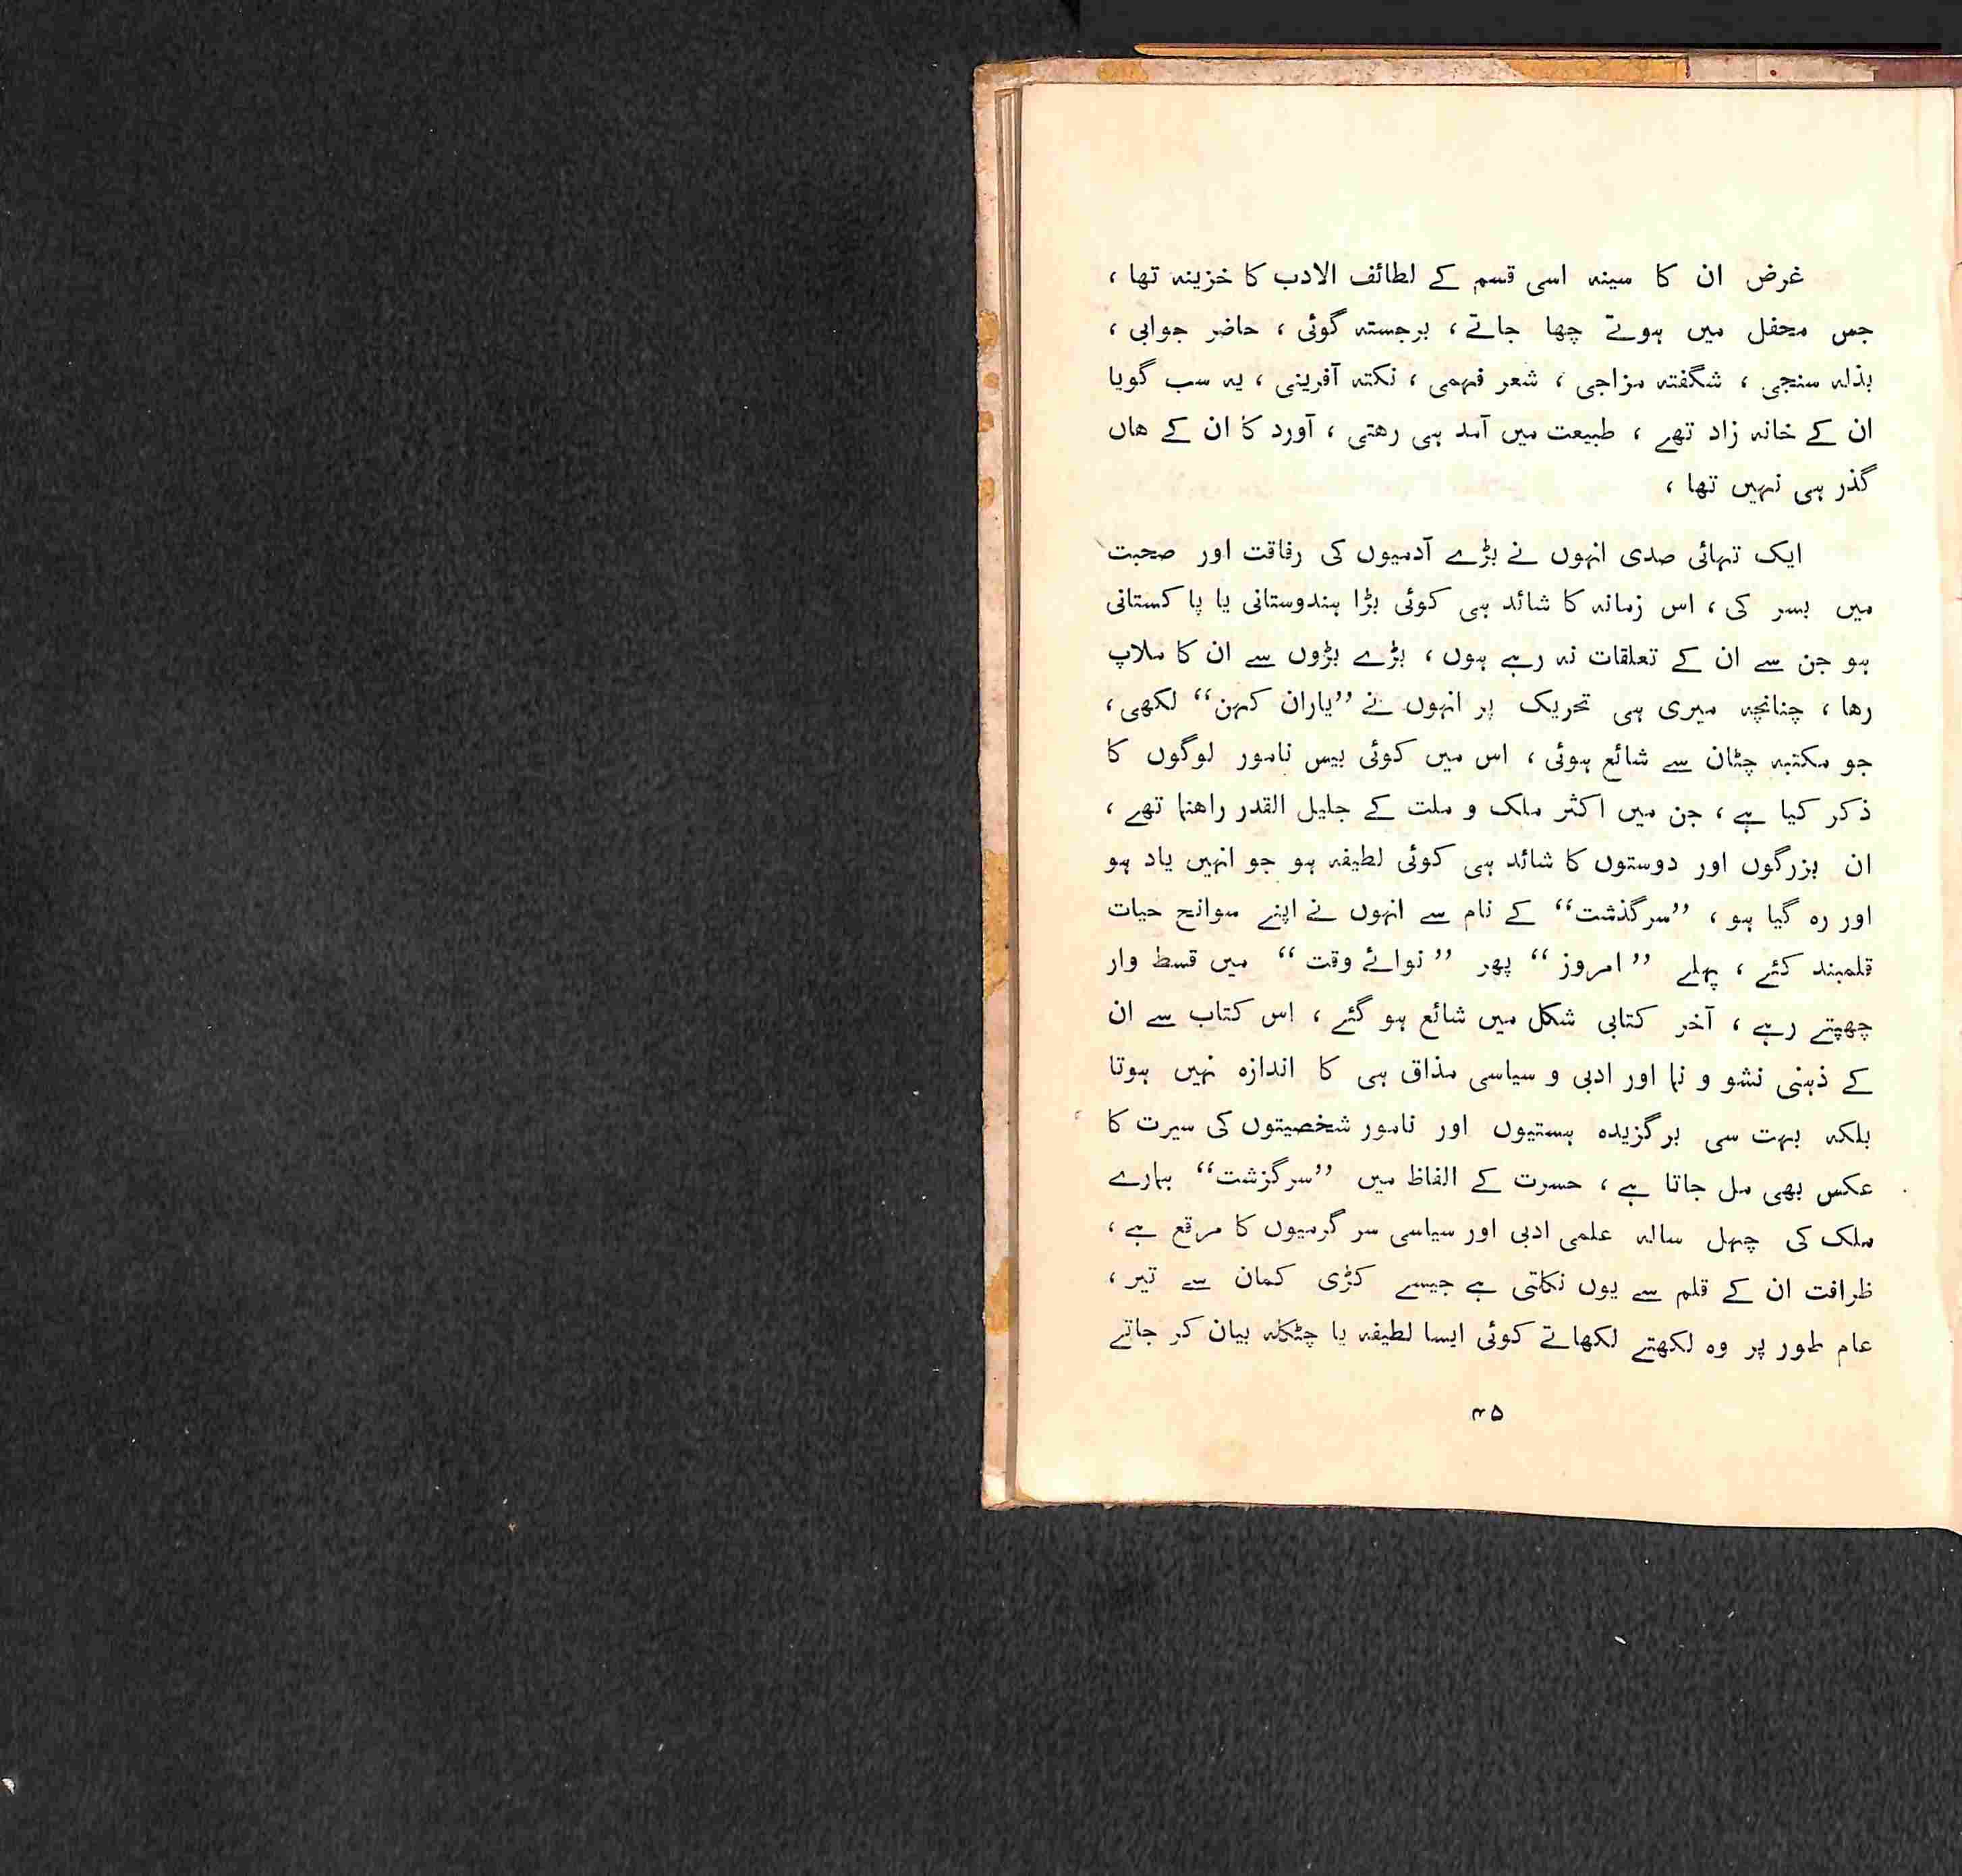 غرض ان کا سینہ اسی قسم کے لطائف الادب کا خزینہ تھا ،
جس محفل میں ہوتے چھا جاتے ، برجستہ گوئی ، حاضر جوابی ،
بذلہ سنجی ، شگفتہ مزاجی ، شعر فہمی ، نکتہ آفرینی ، یہ سب گویا
ان کے خانہ زاد تھے ، طبیعت میں آمد ہی رھتی ، آورد کا ان کے ھاں
گذر ہی نہیں تھا ،
ایک تہائی صدی انہوں نے بڑے آدمیوں کی رفاقت اور صحبت
میں بسر کی ، اس زمانہ کا شائد ہی کوئی بڑا ہندوستانی یا پاکستانی
ہو جن سے ان کے تعلقات نہ رہے ہوں ، بڑے بڑوں سے ان کا ملاپ
رھا ، چنانچہ میری ہی تحریک پر انہوں نے ’’یاران کہن‘‘ لکھی ،
جو مکتبہ چٹان سے شائع ہوئی ، اس میں کوئی بیس نامور لوگوں کا
ذکر کیا ہے ، جن میں اکثر ملک و ملت کے جلیل القدر راھنما تھے ،
ان بزرگوں اور دوستوں کا شائد ہی کوئی لطیفہ ہو جو انہیں یاد ہو
اور رہ گیا ہو ، ’’سرگذشت‘‘ کے نام سے انہوں نے اپنے سوانح حیات
قلمبند کئے ، پہلے ’’امروز‘‘ پھر ’’نوائے وقت‘‘ میں قسط وار
چھپتے رہے ، آخر کتابی شکل میں شائع ہو گئے ، اس کتاب سے ان
کے ذہنی نشو و نما اور ادبی و سیاسی مذاق ہی کا اندازہ نہیں ہوتا
بلکہ بہت سی برگزیدہ ہستیوں اور نامور شخصیتوں کی سیرت کا
عکس بھی مل جاتا ہے ، حسرت کے الفاظ میں ’’سرگزشت‘‘ ہمارے
ملک کی چہل سالہ علمی ادبی اور سیاسی سر گرمیوں کا مرقع ہے ،
ظرافت ان کے قلم سے یوں نکلتی ہے جیسے کڑی کمان سے تیر ،
عام طور پر وہ لکھتے لکھاتے کوئی ایسا لطیفہ یا چٹکلہ بیان کر جاتے
۴۵